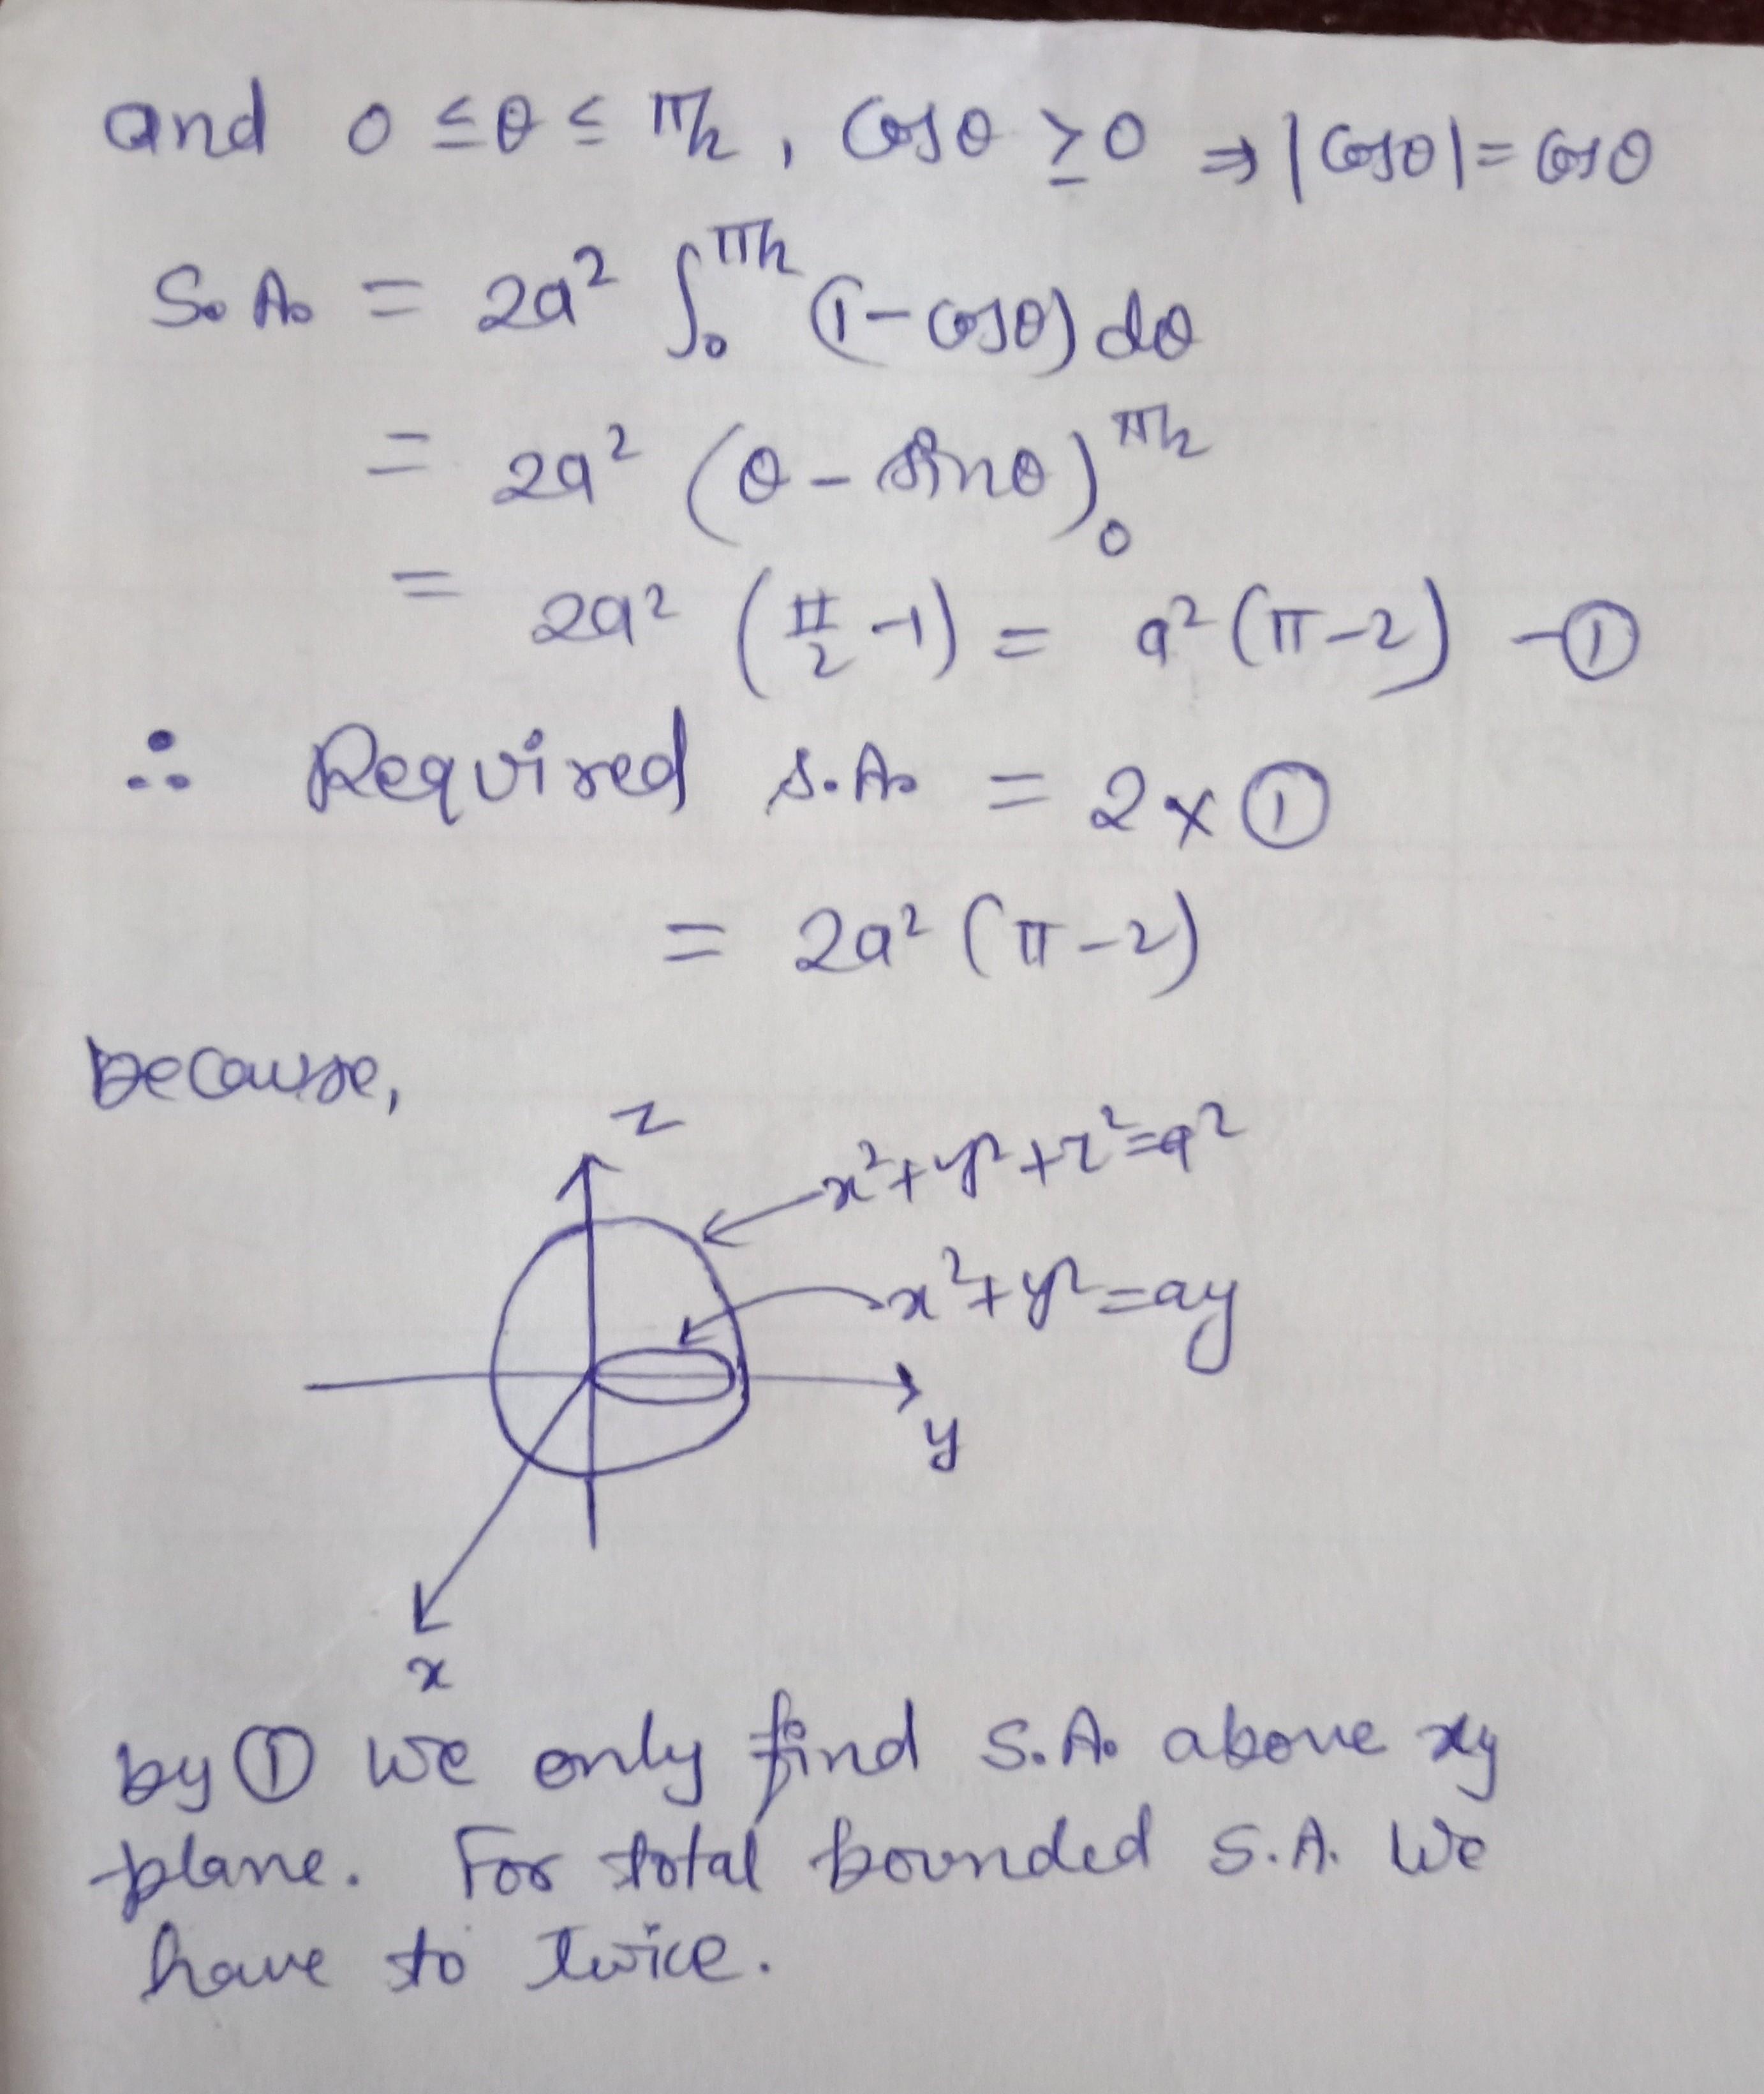 and 0 ≤ θ ≤ π/2, cosθ ≥ 0 ⇒ |cosθ| = cosθ
S.A. = 2a² ∫₀^π/2 (1 - cosθ) dθ
= 2a² (θ - sinθ)₀^π/2
= 2a² (π/2 - 1) = a² (π - 2) - ①
∴ Required s.A. = 2 × ①
= 2a² (π - 2)
because,
z
x² + y² + z² = a²
x² + y² = ay
y
x
by ① we only find S.A. above xy
plane. For total bounded S.A. We
have to twice.